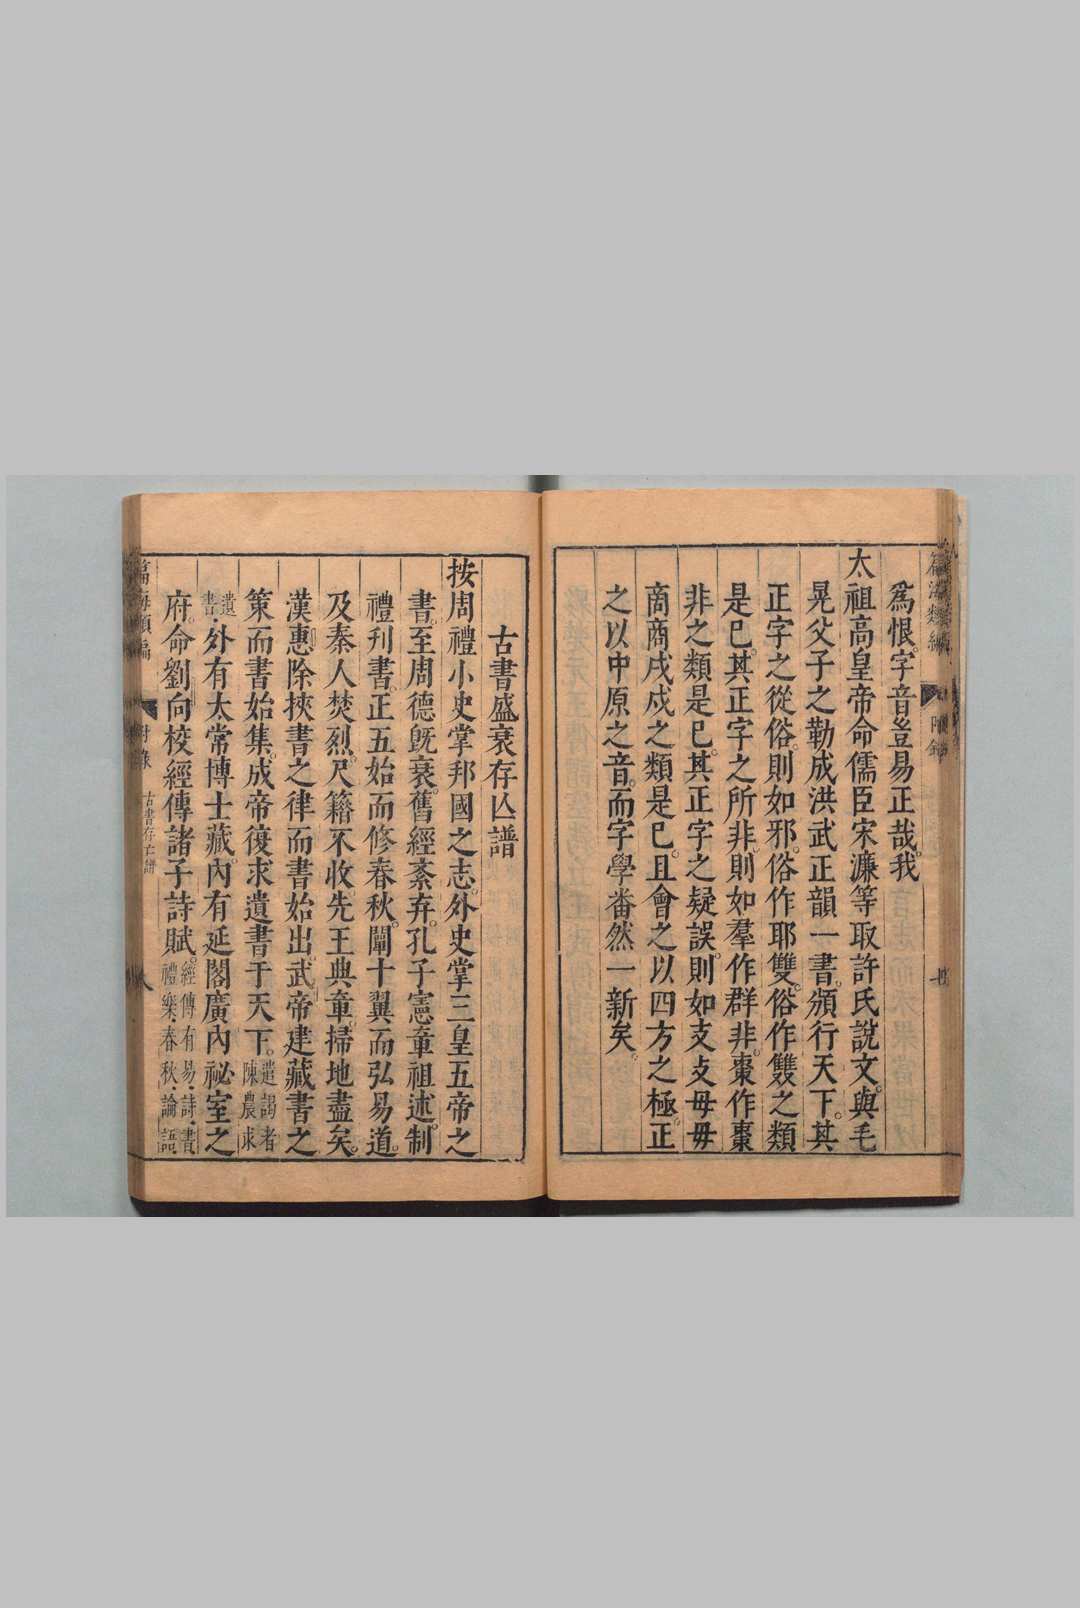 爲恨。字音豈易正哉。我
太祖高皇帝命儒臣宋濂等取許氏說文。與毛
晃父子之勒成洪武正韻一書。頒行天下。其
正字之從俗。則如邪。俗作耶。雙。俗作䨇之類
是已。其正字之所非。則如羣作群非。棗作棗
非之類是已。其正字之疑誤。則如支攴毋毋
商商戍戍之類是已。且會之以四方之極。正
之以中原之音。而字學畨然一新矣。
古書盛衰存亾譜
按周禮小史掌邦國之志。外史掌三皇五帝之
書。至周德旣衰。舊經紊弃。孔子憲章祖述。制
禮刋書。正五始而修春秋。闡十翼而弘易道。
及秦人焚烈。尺籍不收。先王典章。掃地盡矣。
漢惠除挾書之律而書始出。武帝建藏書之
策而書始集。成帝復求遺書于天下。遣謁者陳農求
遺書。外有太常博士藏。內有延閣廣內祕室之
府。命劉向校經傳諸子詩賦。經傳有易。詩。書禮樂。春秋。論語
篇海類編
附錄
古書存亡譜
八